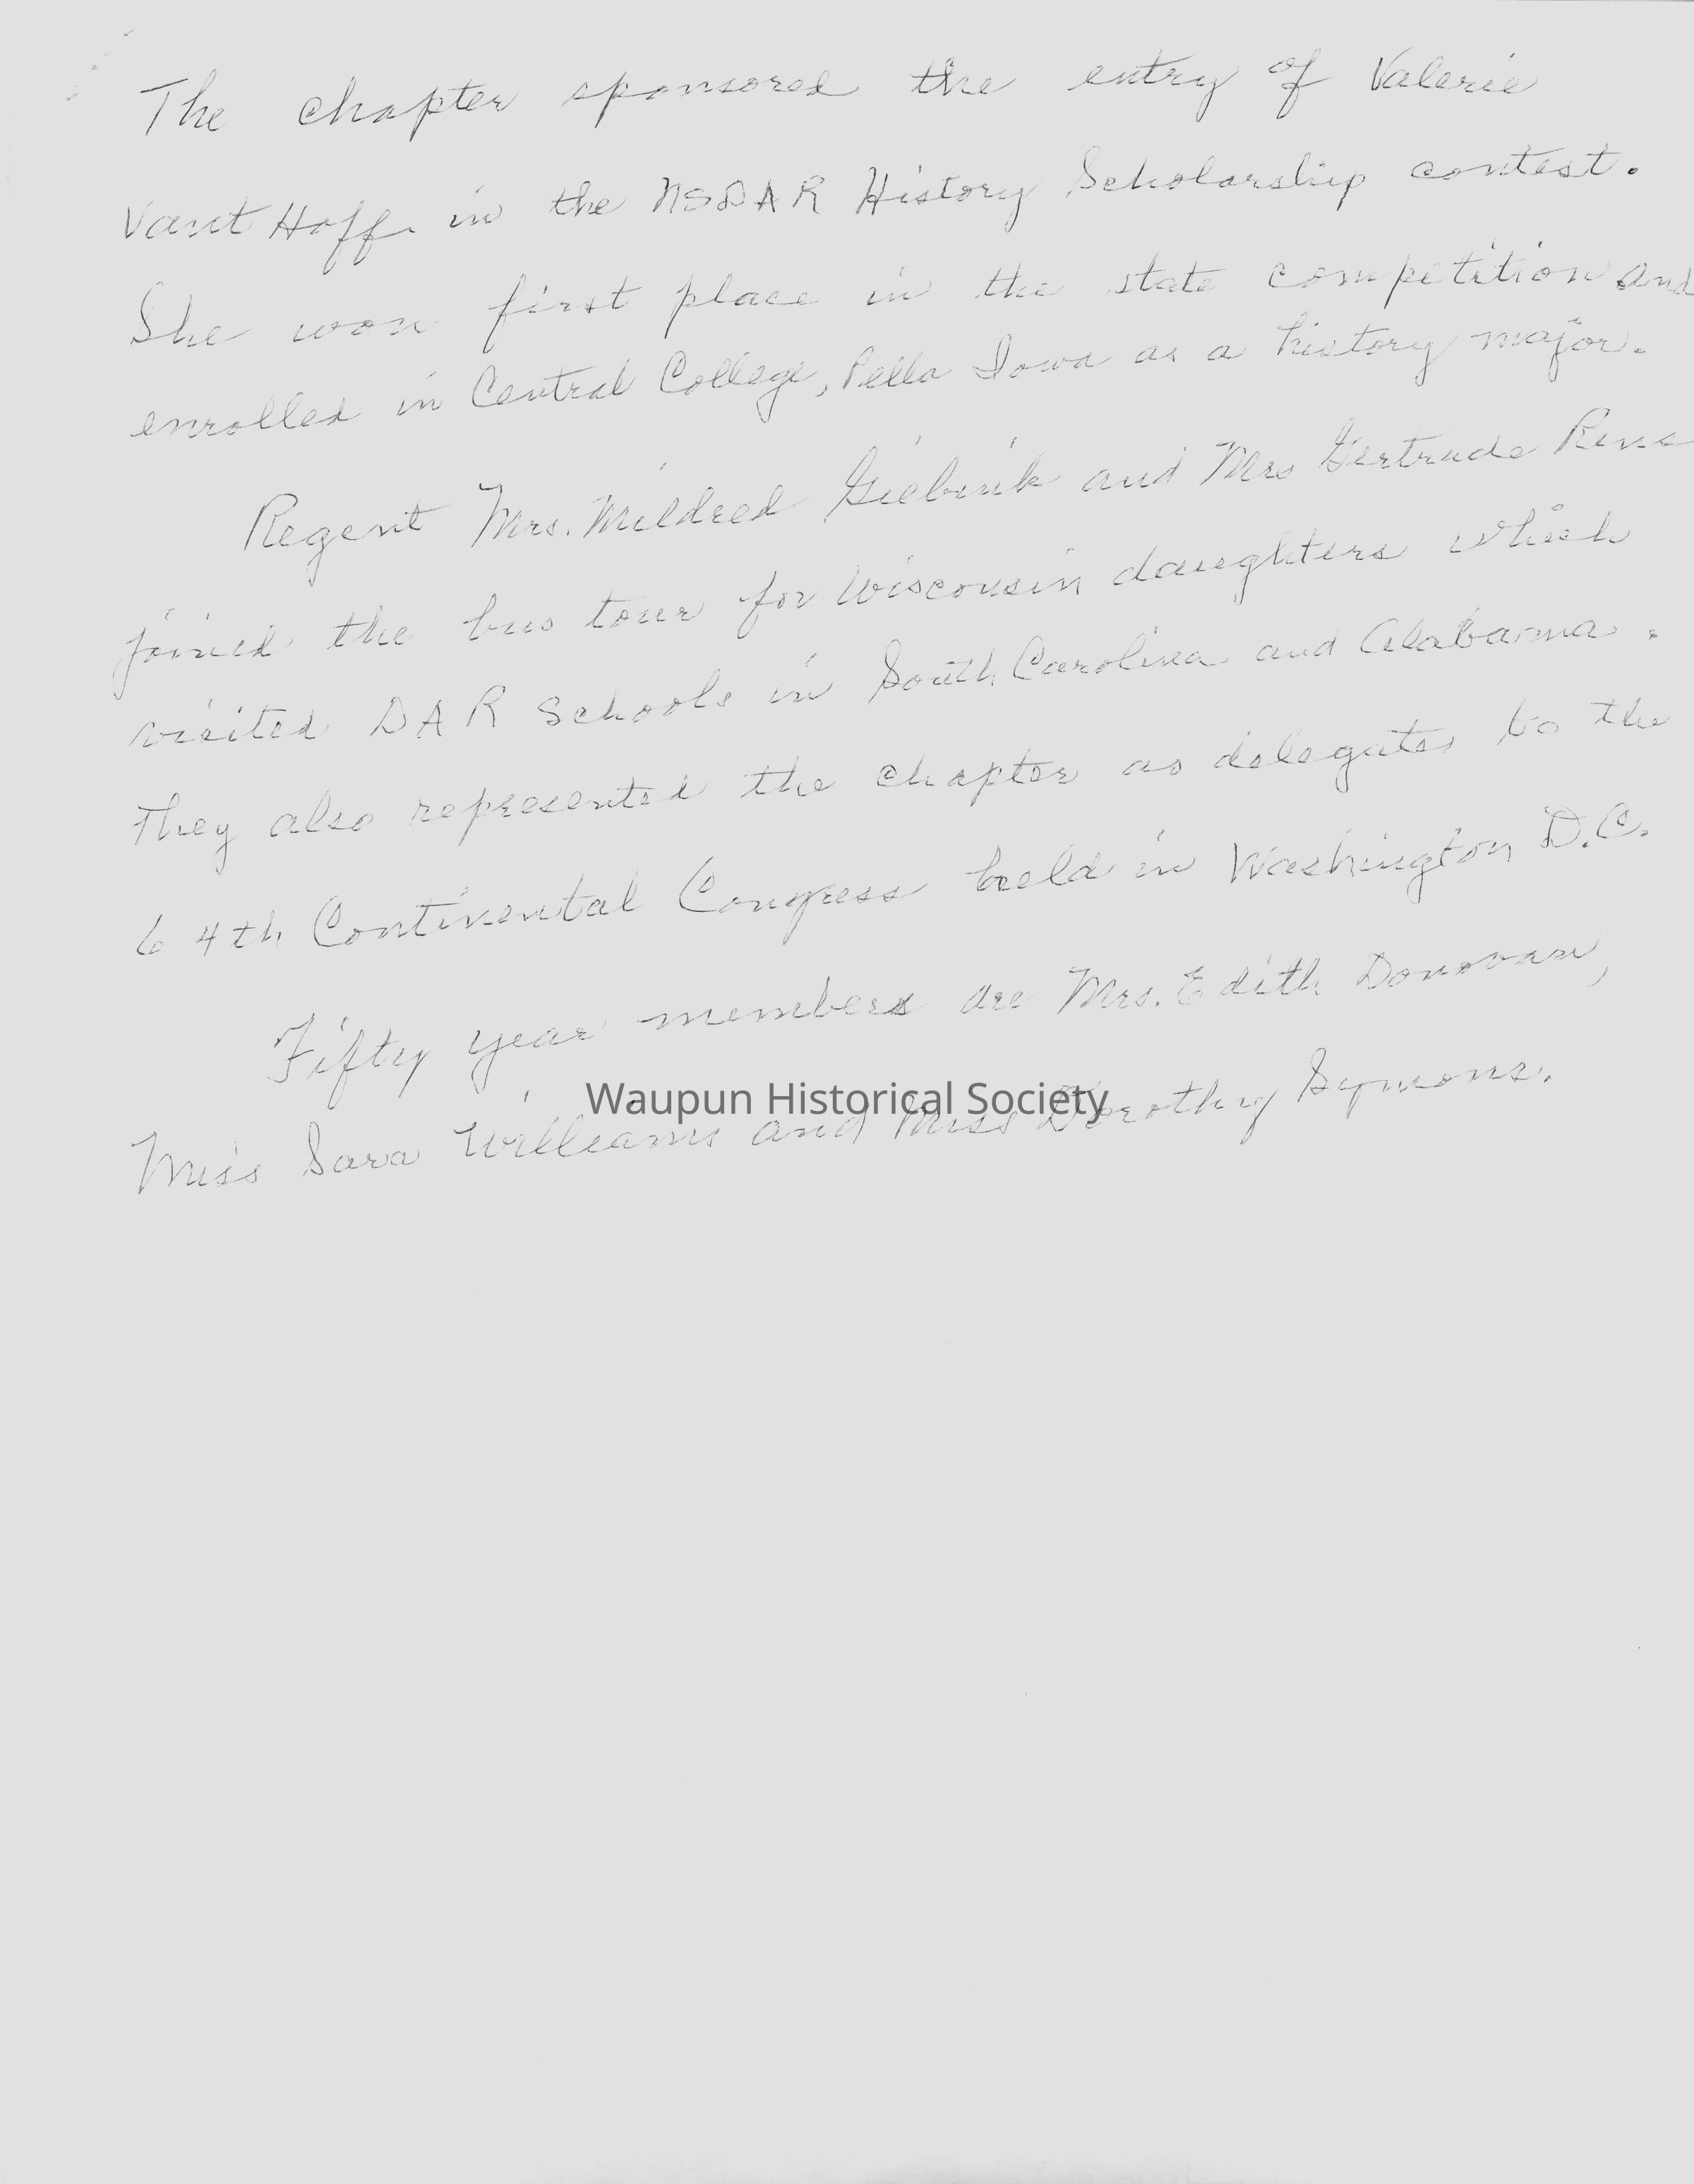 The chapter sponsored the entry of Valerie
Vant Hoff in the NSDAR History Scholarship contest.
She won first place in the state competition and
enrolled in Central College, Pella Iowa as a history major.
Regent Mrs. Mildred Giebink and Mrs Gertrude
joined the bus tour for Wisconsin daughters which
visited DAR Schools in South Carolina and Alabama.
They also represented the chapter as delegates to the
64th Continental Congress held in Washington D.C.
Fifty year members are Mrs. Edith Donovan,
Waupun Historical Society
Miss Sara Williams and Miss Dorothy Symons.